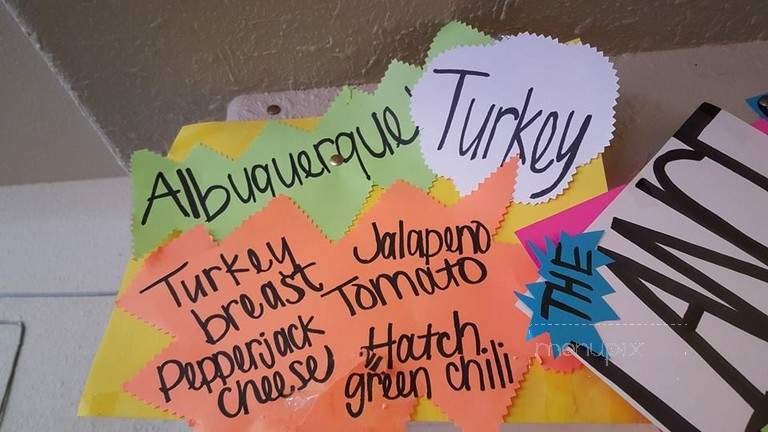 Albuquerque
Turkey
Turkey
breast
Pepperjack
cheese
Jalapeno
Tomato
Hatch
green chili
THE
menupix